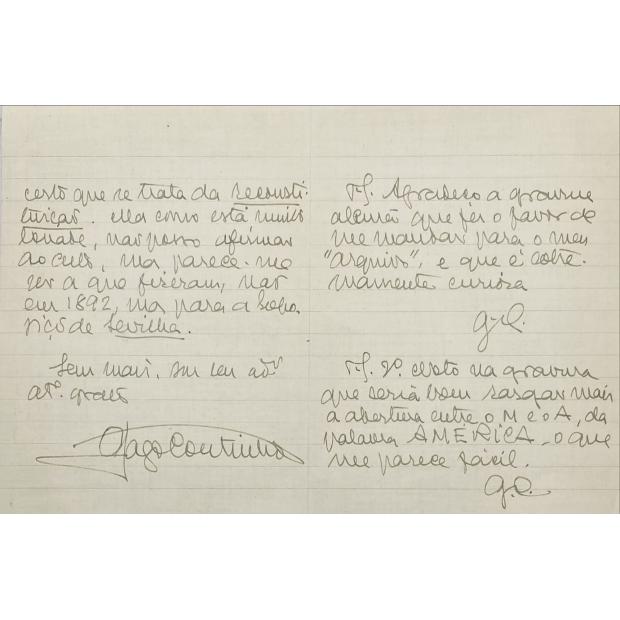 certo que se trata da reconsti-
tuição. Mas como está muito
tonado, não posso afirmar
ao certo, mas parece-me
ser a que fizeram, não
em 1892, mas para a Expo-
sição de Sevilha.
Sem mais, sou seu adᵒʳ
atº. grato
Gago Coutinho
P.S. Agradeço a gravura
alemã que fez o favor de
me mandar para o meu
"arquivo", e que é extre-
mamente curiosa
G.C.
P.S. 2º. Certo na gravura
que seria bom rasgar mais
a abertura entre o M e o A, da
palavra AMÉRICA - o que
me parece fácil.
G.C.